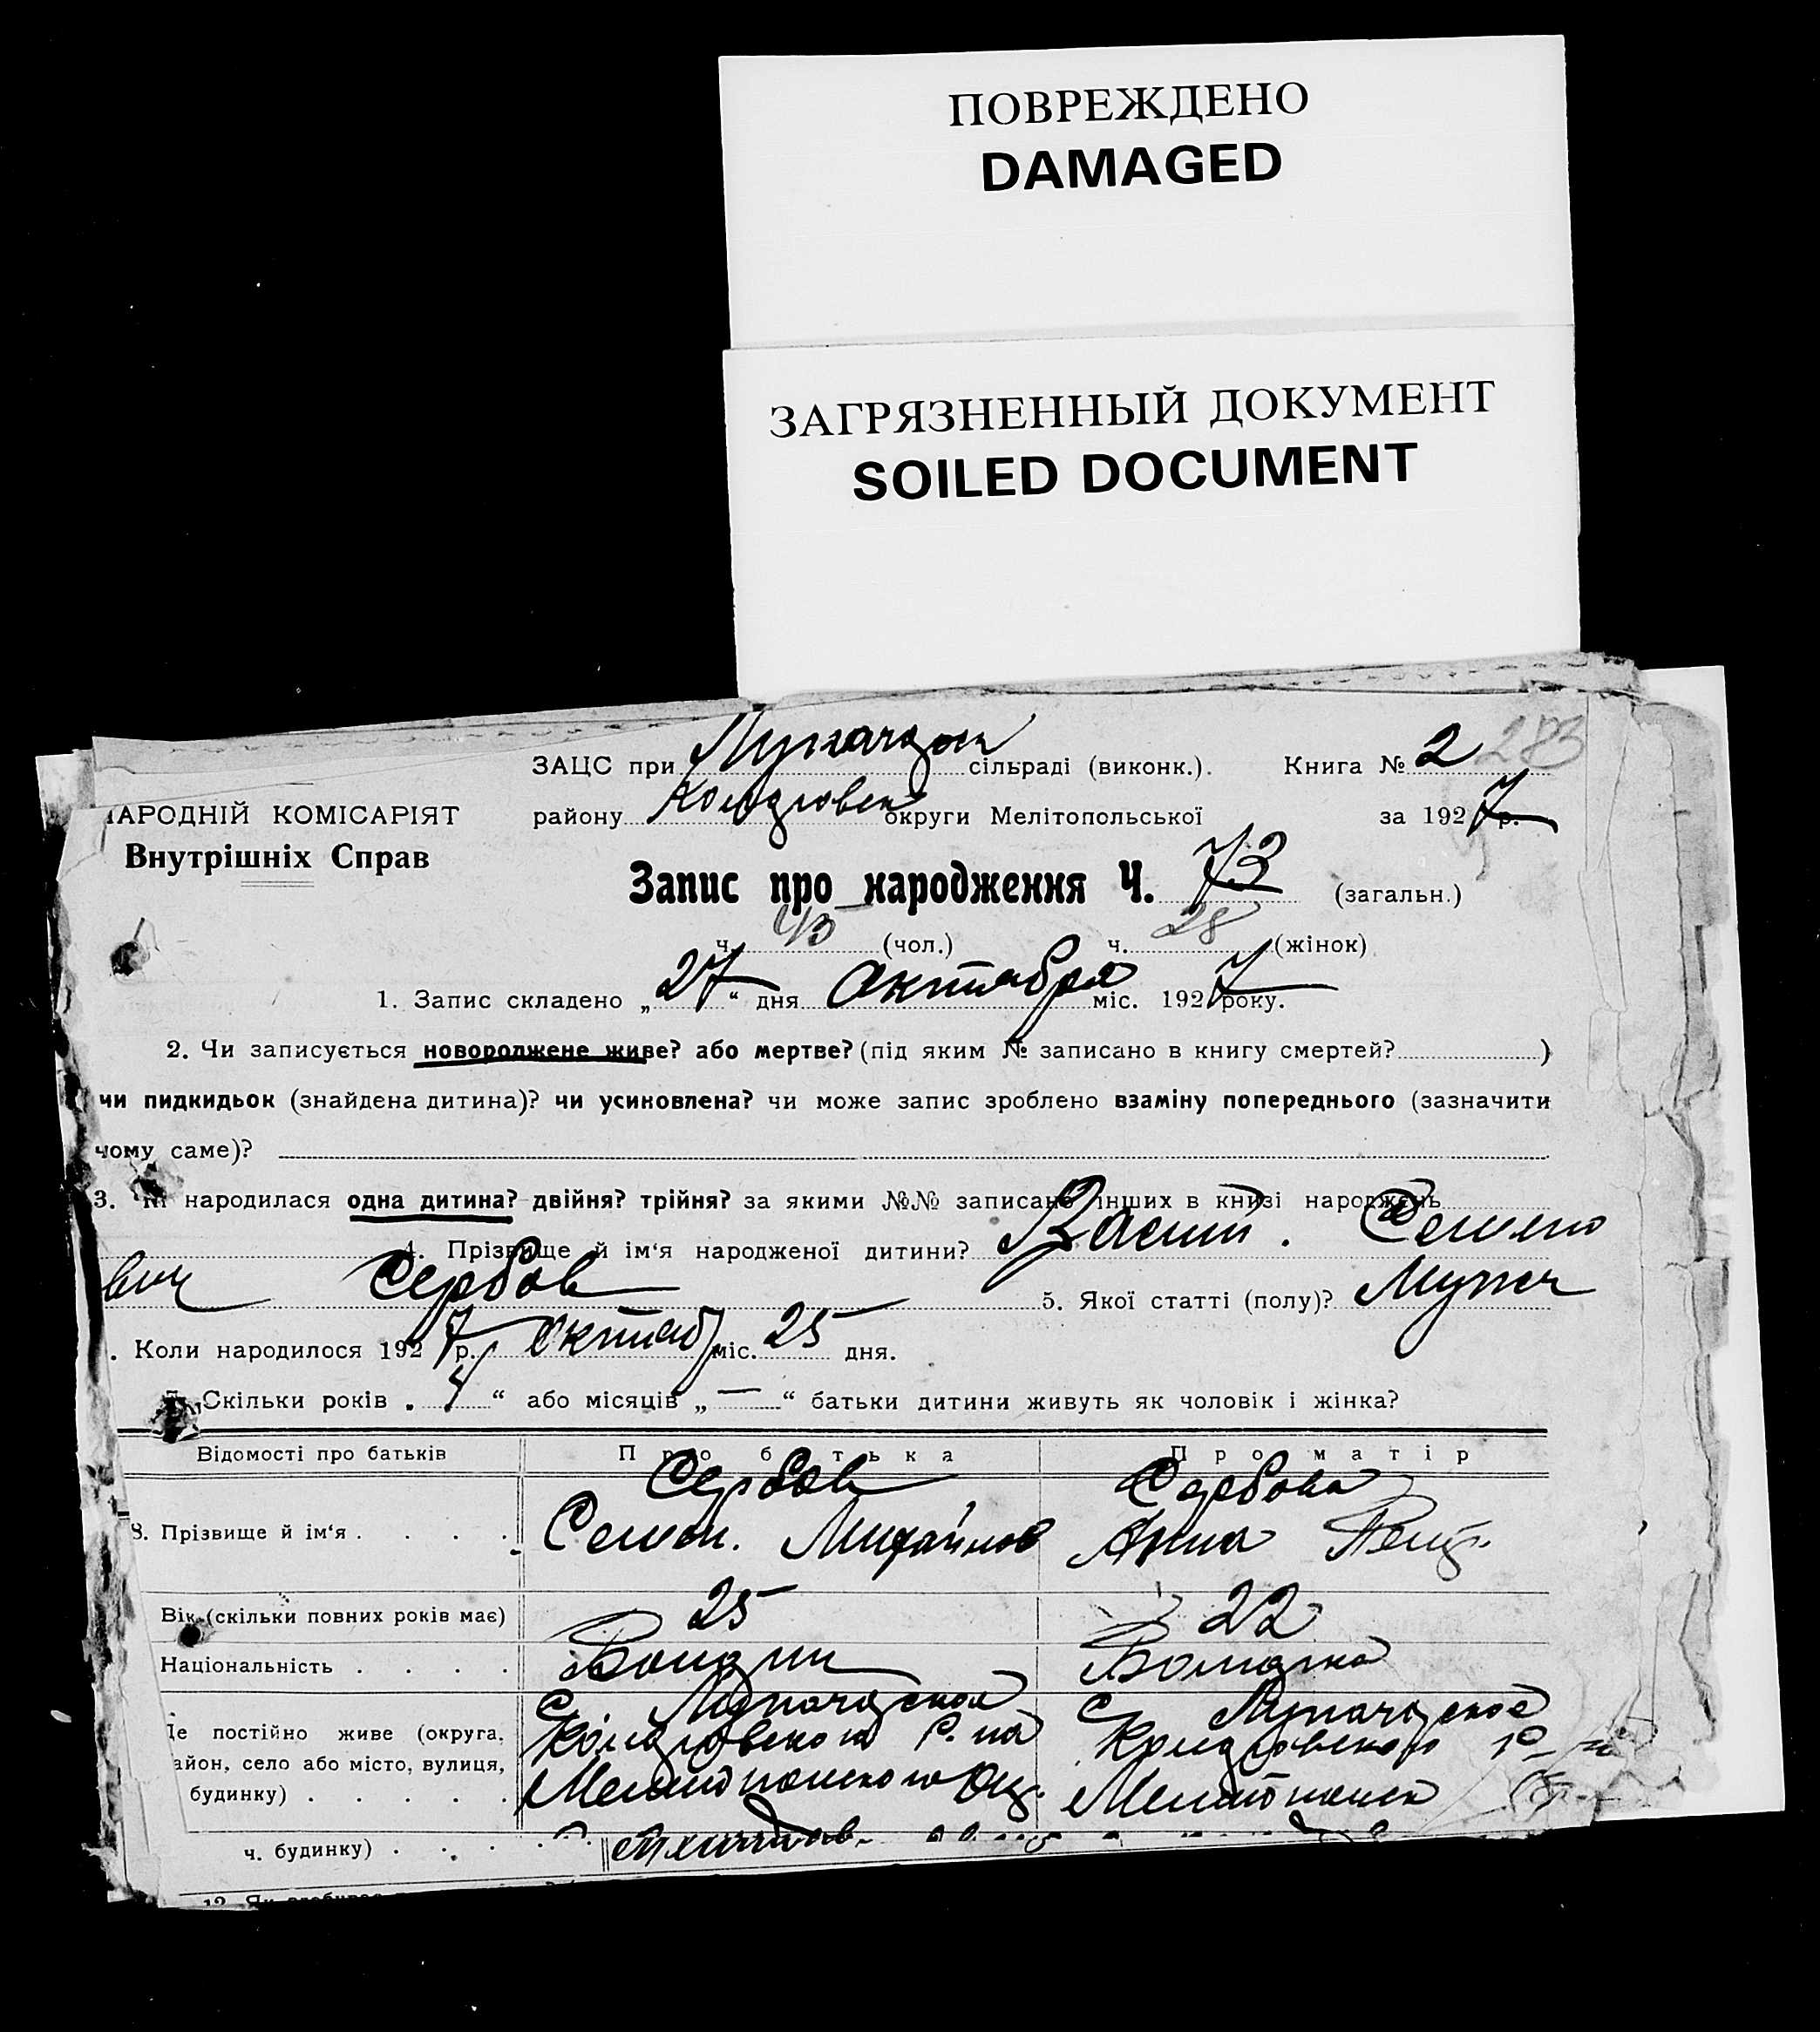 ПОВРЕЖДЕНО
DAMAGED
ЗАГРЯЗНЕННЫЙ ДОКУМЕНТ
SOILED DOCUMENT
ЗАЦС при сільраді (виконк.). Книга № 2 283
НАРОДНІЙ КОМІСАРІЯТ району округи Мелітопольської за 1927 р.
Внутрішніх Справ
Запис про народження Ч. 73 (загальн.)
ч. 45 (чол.) ч. 28 (жінок)
1. Запис складено „27“ дня Октября міс. 1927 року.
2. Чи записується новороджене живе? або мертве? (під яким № записано в книгу смертей? )
чи пидкидьок (знайдена дитина)? чи усиновлена? чи може запис зроблено взаміну попереднього (зазначити
чому саме)?
3. Чи народилася одна дитина? двійня? трійня? за якими №№ записано інших в книзі народжень
4. Прізвище й ім‘я народженої дитини? Васил. Семено
вич Сербов 5. Якої статті (полу)? Мужск
. Коли народилося 1927 р. Октяб міс. 25 дня.
7. Скільки років „ 4 “ або місяців „ — “ батьки дитини живуть як чоловік і жінка?
Відомості про батьків Про батька Про матір
Сербов Сербова
8. Прізвище й ім‘я . . . . Семен. Михайлов Анна Петр.
Вік (скільки повних років має) 25 22
Національність . . . . Болгарин Болгарка
С. С.
Де постійно живе (округа,
район, село або місто, вулиця,
будинку) . . . . . Мелитопольского Окр. Мелитопольск
ч. будинку) . . . .
12. Як